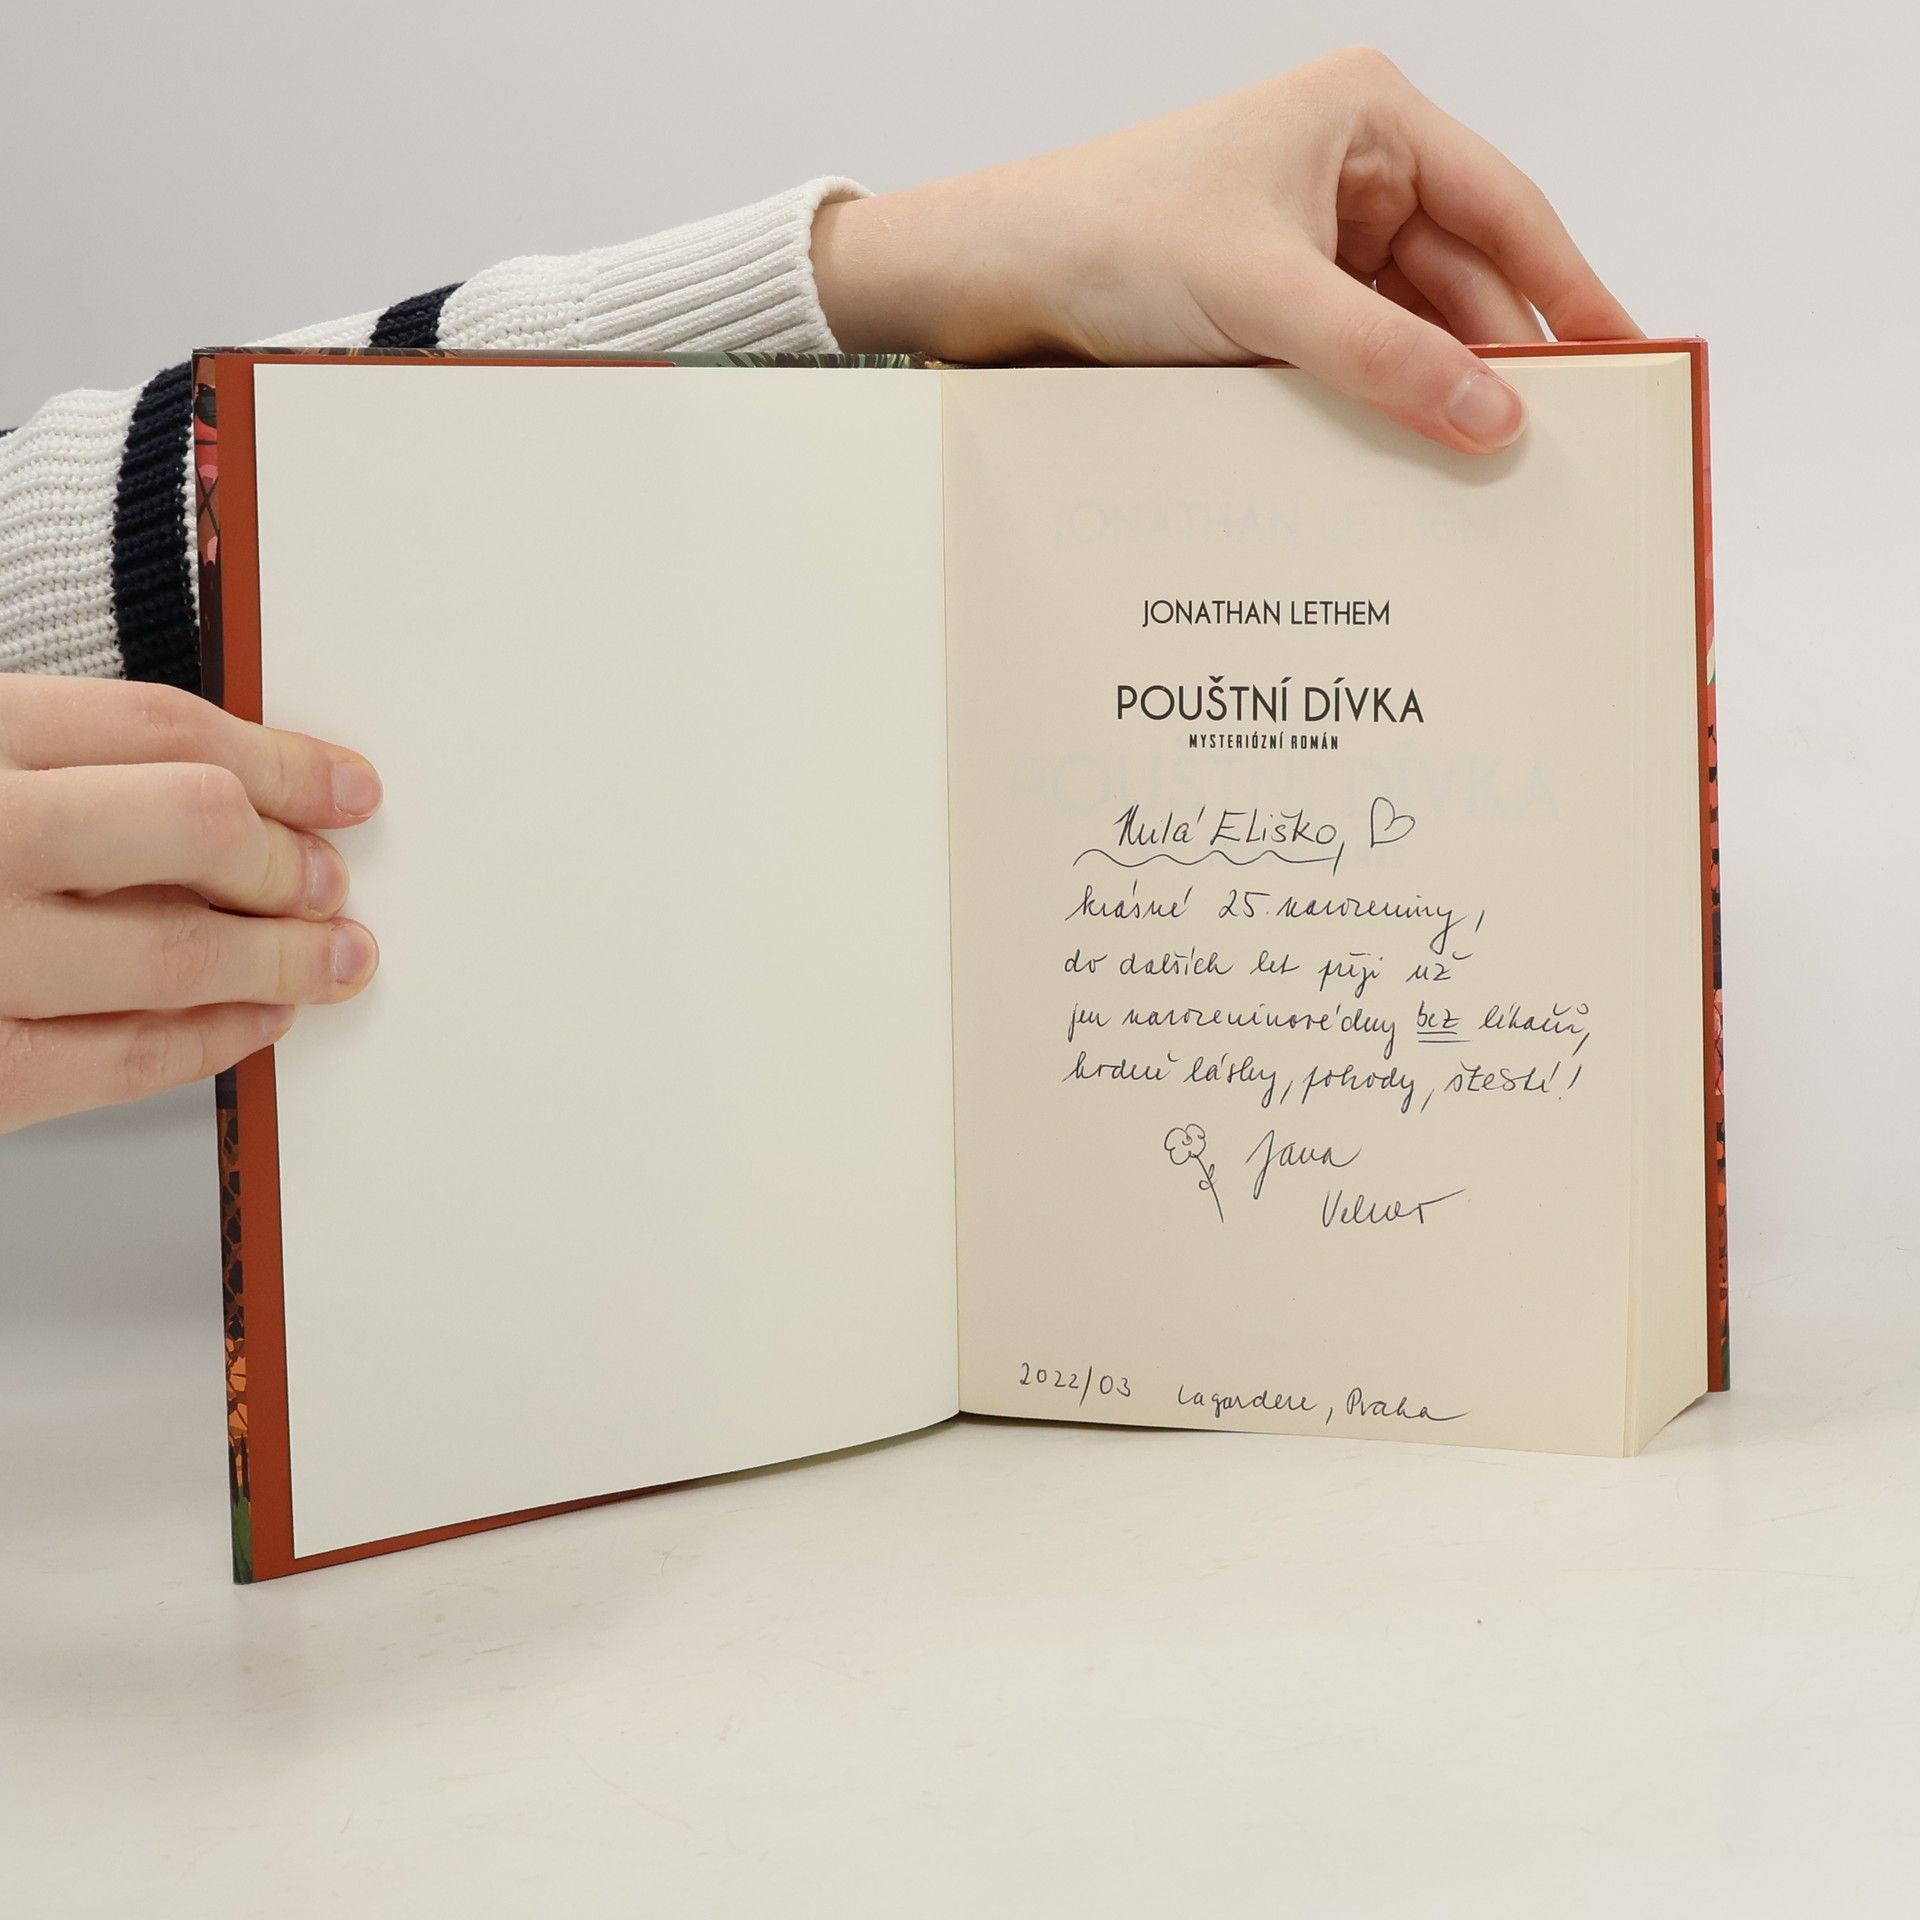 JONATHAN LETHEM
POUŠTNÍ DÍVKA
MYSTERIÓZNÍ ROMÁN
Milá Eliško,
krásné 25. narozeniny,
do dalších let přeji už
jen narozeninové dny bez lékařů,
hodně lásky, pohody, štěstí!
Jana
2022/03 Lagardere, Praha